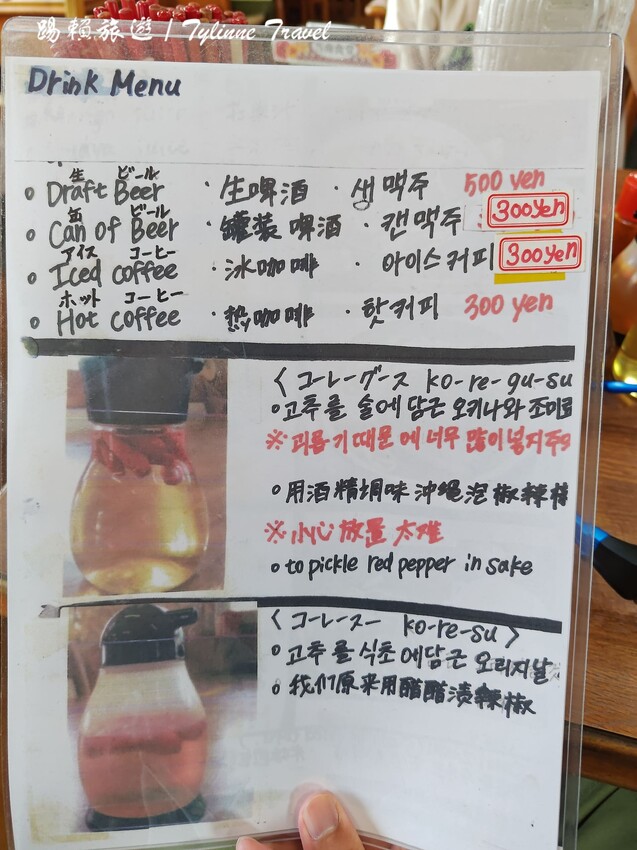 踢賴旅遊 / Tylinne Travel
Drink Menu
生 ビール
Draft Beer ・生啤酒 ・생맥주 500 yen
缶 ビール
Can of Beer ・罐装啤酒 ・캔맥주 300yen
アイス コーヒー
Iced coffee ・冰咖啡 ・아이스커피 300yen
ホット コーヒー
Hot coffee ・热咖啡 ・핫커피 300 yen
〈コーレーグース ko-re-gu-su
고추를 술에 담근 오키나와 조미료
※ 때문에 너무 많이 넣지
用酒精 味 沖绳泡椒辣椒
※小心放置太难
to pickle red pepper in sake
〈コーレースー ko-re-su〉
고추를 식초에 담근 오리지날
我们原来用醋醋渍辣椒